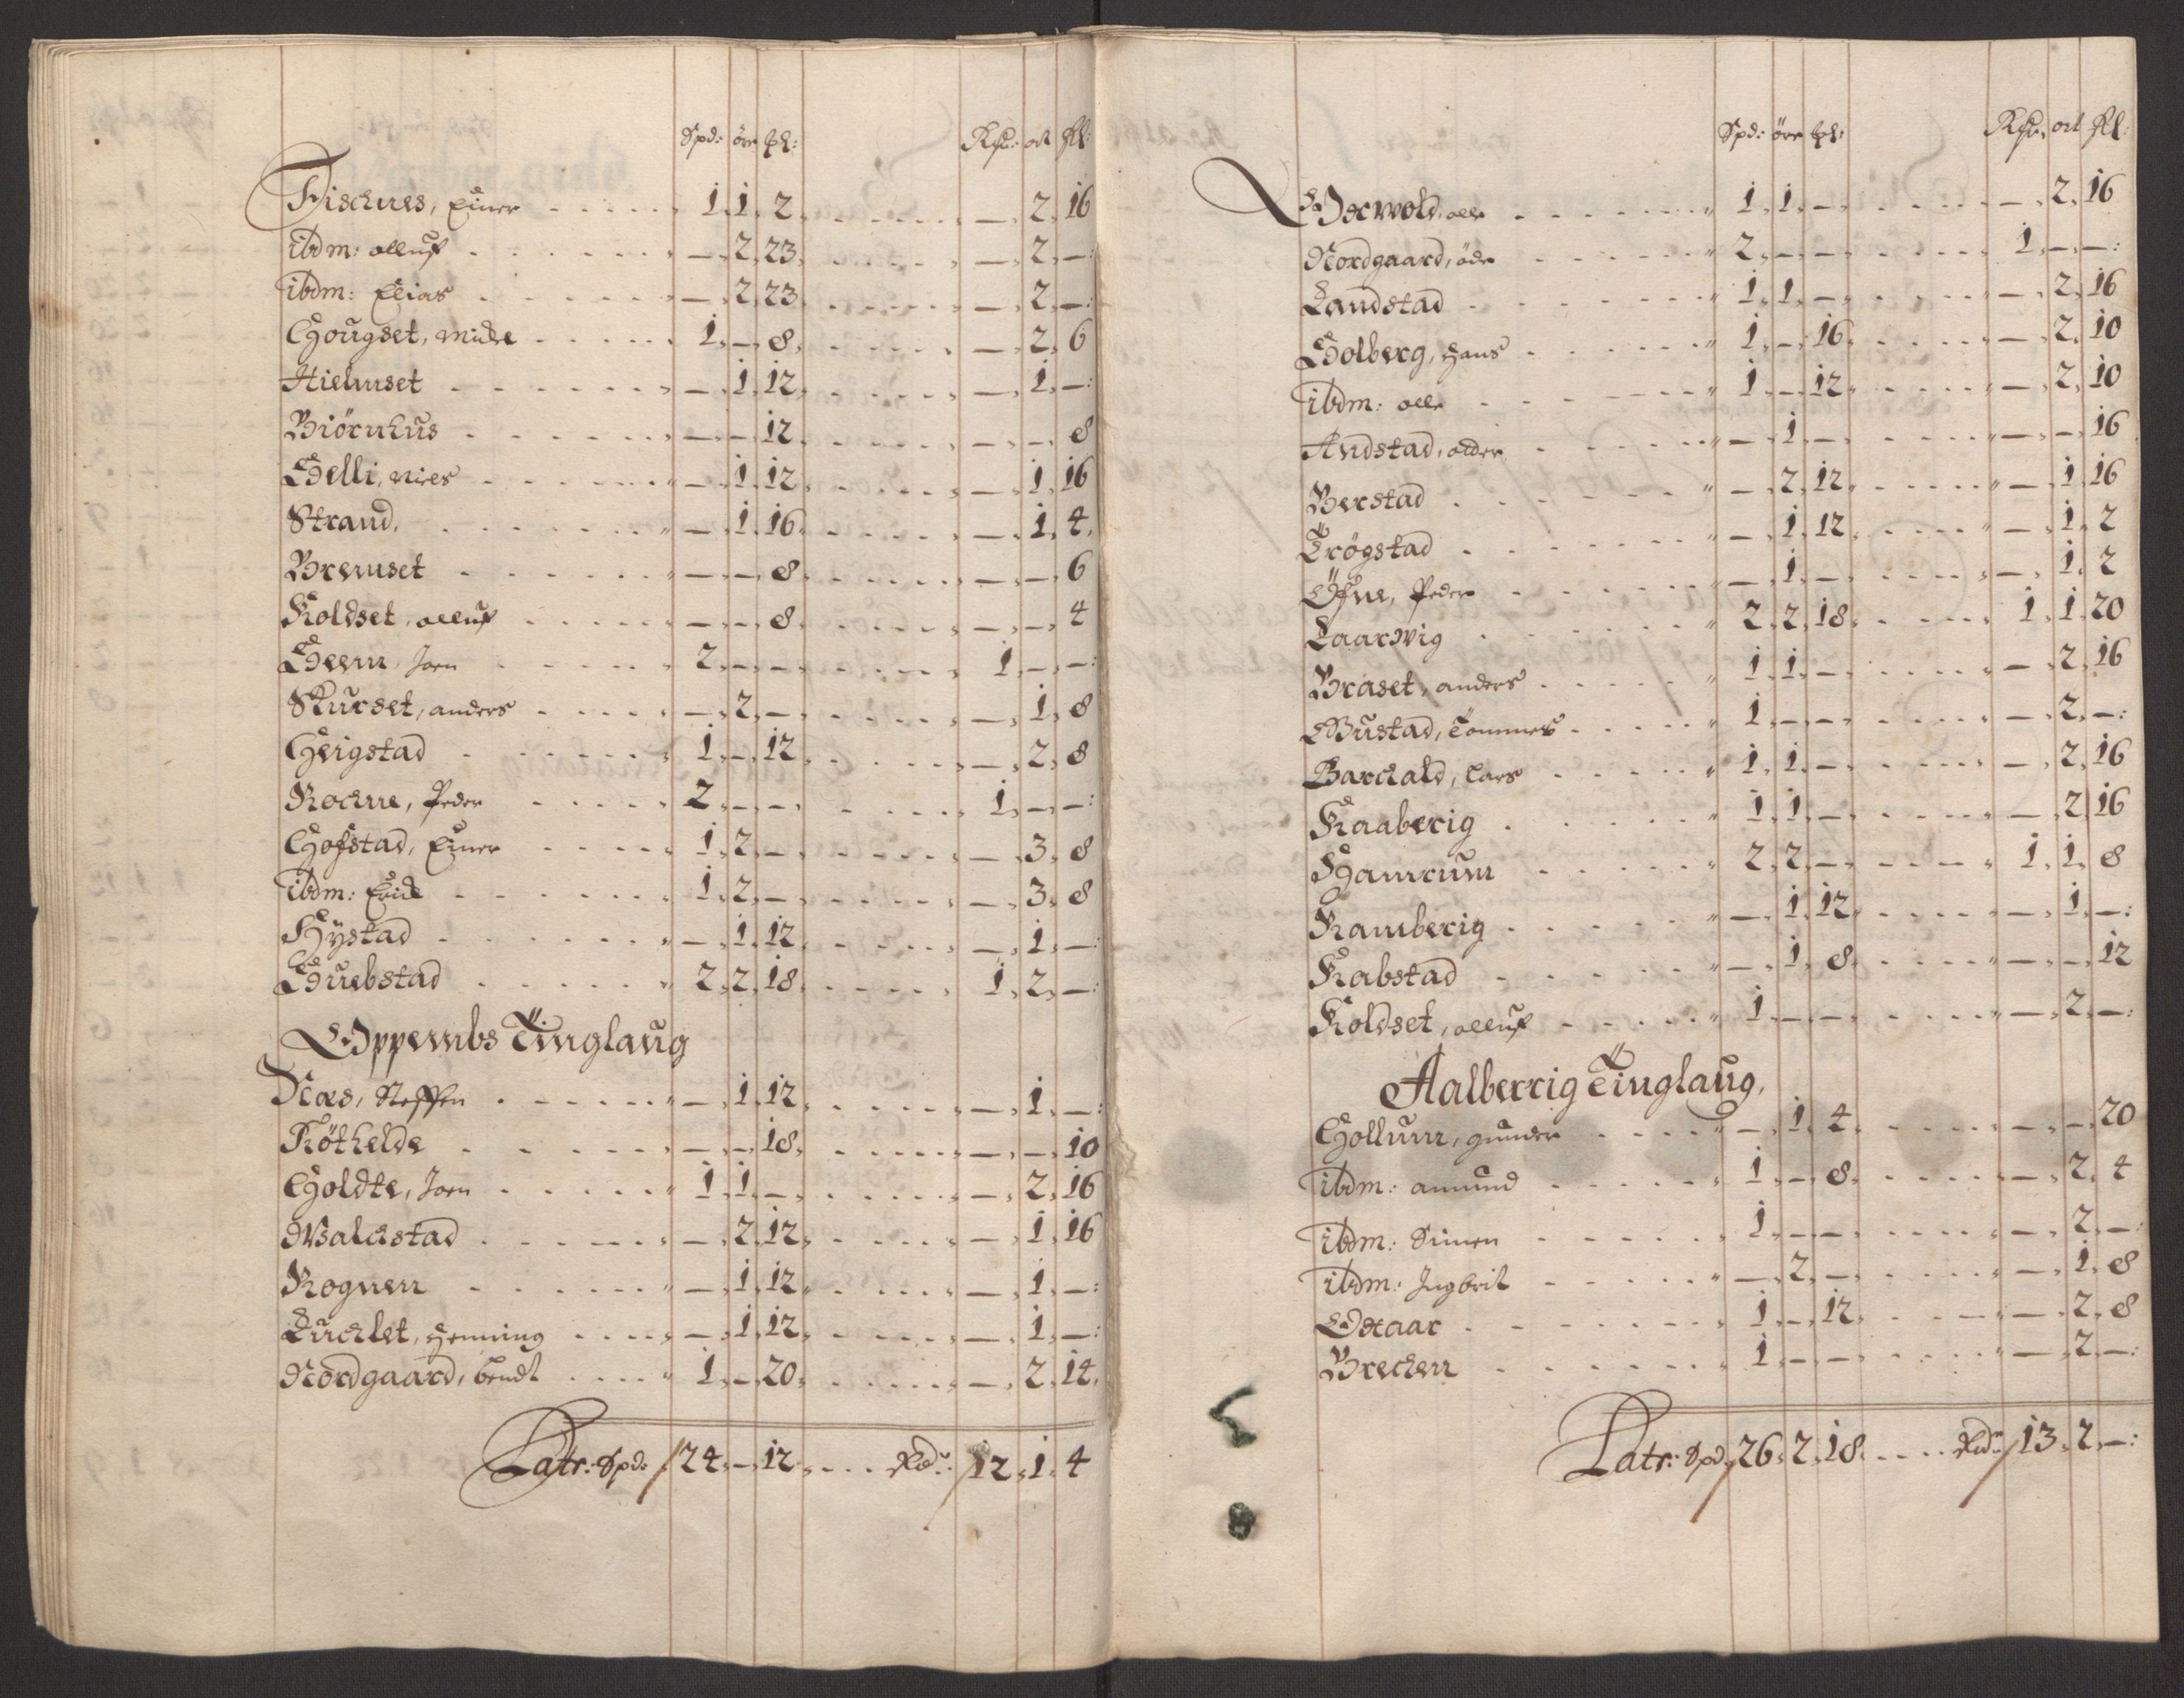 Spd: öre ß:  Rdr: ort ß:
Fischnes, Einer 1. 1. 2 — 2. 16
ibdm: olluf — 2. 23. — 2. —:
ibdm: Elias — 2. 23. — 2. —:
Hougset, Midle 1. — 8. — 2. 6
Hielmset — 1. 12. — 1. —:
Biörnhus — — 12. — — 8
Helli, Niels — 1. 12. — 1. 16
Strand, — 1. 16. — 1. 4.
Bremset — — 8. — — 6
Koldset, olluf — — 8. — — 4
Heem, Joen 2. — — 1. — —:
Skurset, anders — 2. — — 1. 8
Heigstad 1. — 12. — 2. 8
Rochne, Peder 2. — — 1. — —:
Hofstad, Einer 1. 2. — — 3. 8
ibdm: Erich 1. 2. — — 3. 8
Hÿstad — 1. 12. — 1. —:
Huebstad 2. 2. 18. 1. 2. —:
Oppembs Tinglaug
Næs, Steffen — 1. 12. — 1. —:
Röthelde — — 18. — — 10
Holdte, Joen 1. 1. — — 2. 16
Walchstad — 2. 12. — 1. 16
Rognen — 1. 12. — 1. —:
Luchlet, Henning — 1. 12. — 1. —:
Nordgaard, bendt 1. — 20. — 2. 14.
Latr: Spd: 24. — 12. Rdr: 12. 1. 4
Spd: öre ß:  Rdr: ort ß:
Norwold, olle 1. 1. — — 2. 16
Nordgaard, öde 2. — — 1. — —:
Landstad 1. 1. — — 2. 16
Holberg, Hans 1. — 16. — 2. 10
ibdm: olle 1. — 12. — 2. 10
Andstad, older — 1. — — — 16
Berstad — 2. 12. — 1. 16
Trögstad — 1. 12. — 1. 2
Öfne, Peder — 1. — — 1. 2
Laarwig 2. 2. 18. 1. 1. 20
Braset, anders 1. 1. — — 2. 16
Bustad, Tommes 1. — — — 2. —:
Barchald, Lars 1. 1. — — 2. 16
Kaaberig 1. 1. — — 2. 16
Hamrum 2. 2. — 1. 1. 8
Ramberig — 1. 12. — 1. —:
Rabstad — 1. 8. — — 12
Koldset, olluf 1. — — — 2. —:
Aalberrig Tinglaug,
Hollum, gunder — 1. 4. — — 20
ibdm: amund 1. — 8. — 2. 4
ibdm: Simen 1. — — — 2. —:
ibdm: Ingbril — 2. — — 1. 8
Odtaar 1. — 12. — 2. 8
Brechen 1. — — — 2. —:
Latr: Spd: 26. 2. 18. Rdr: 13. 2. —: